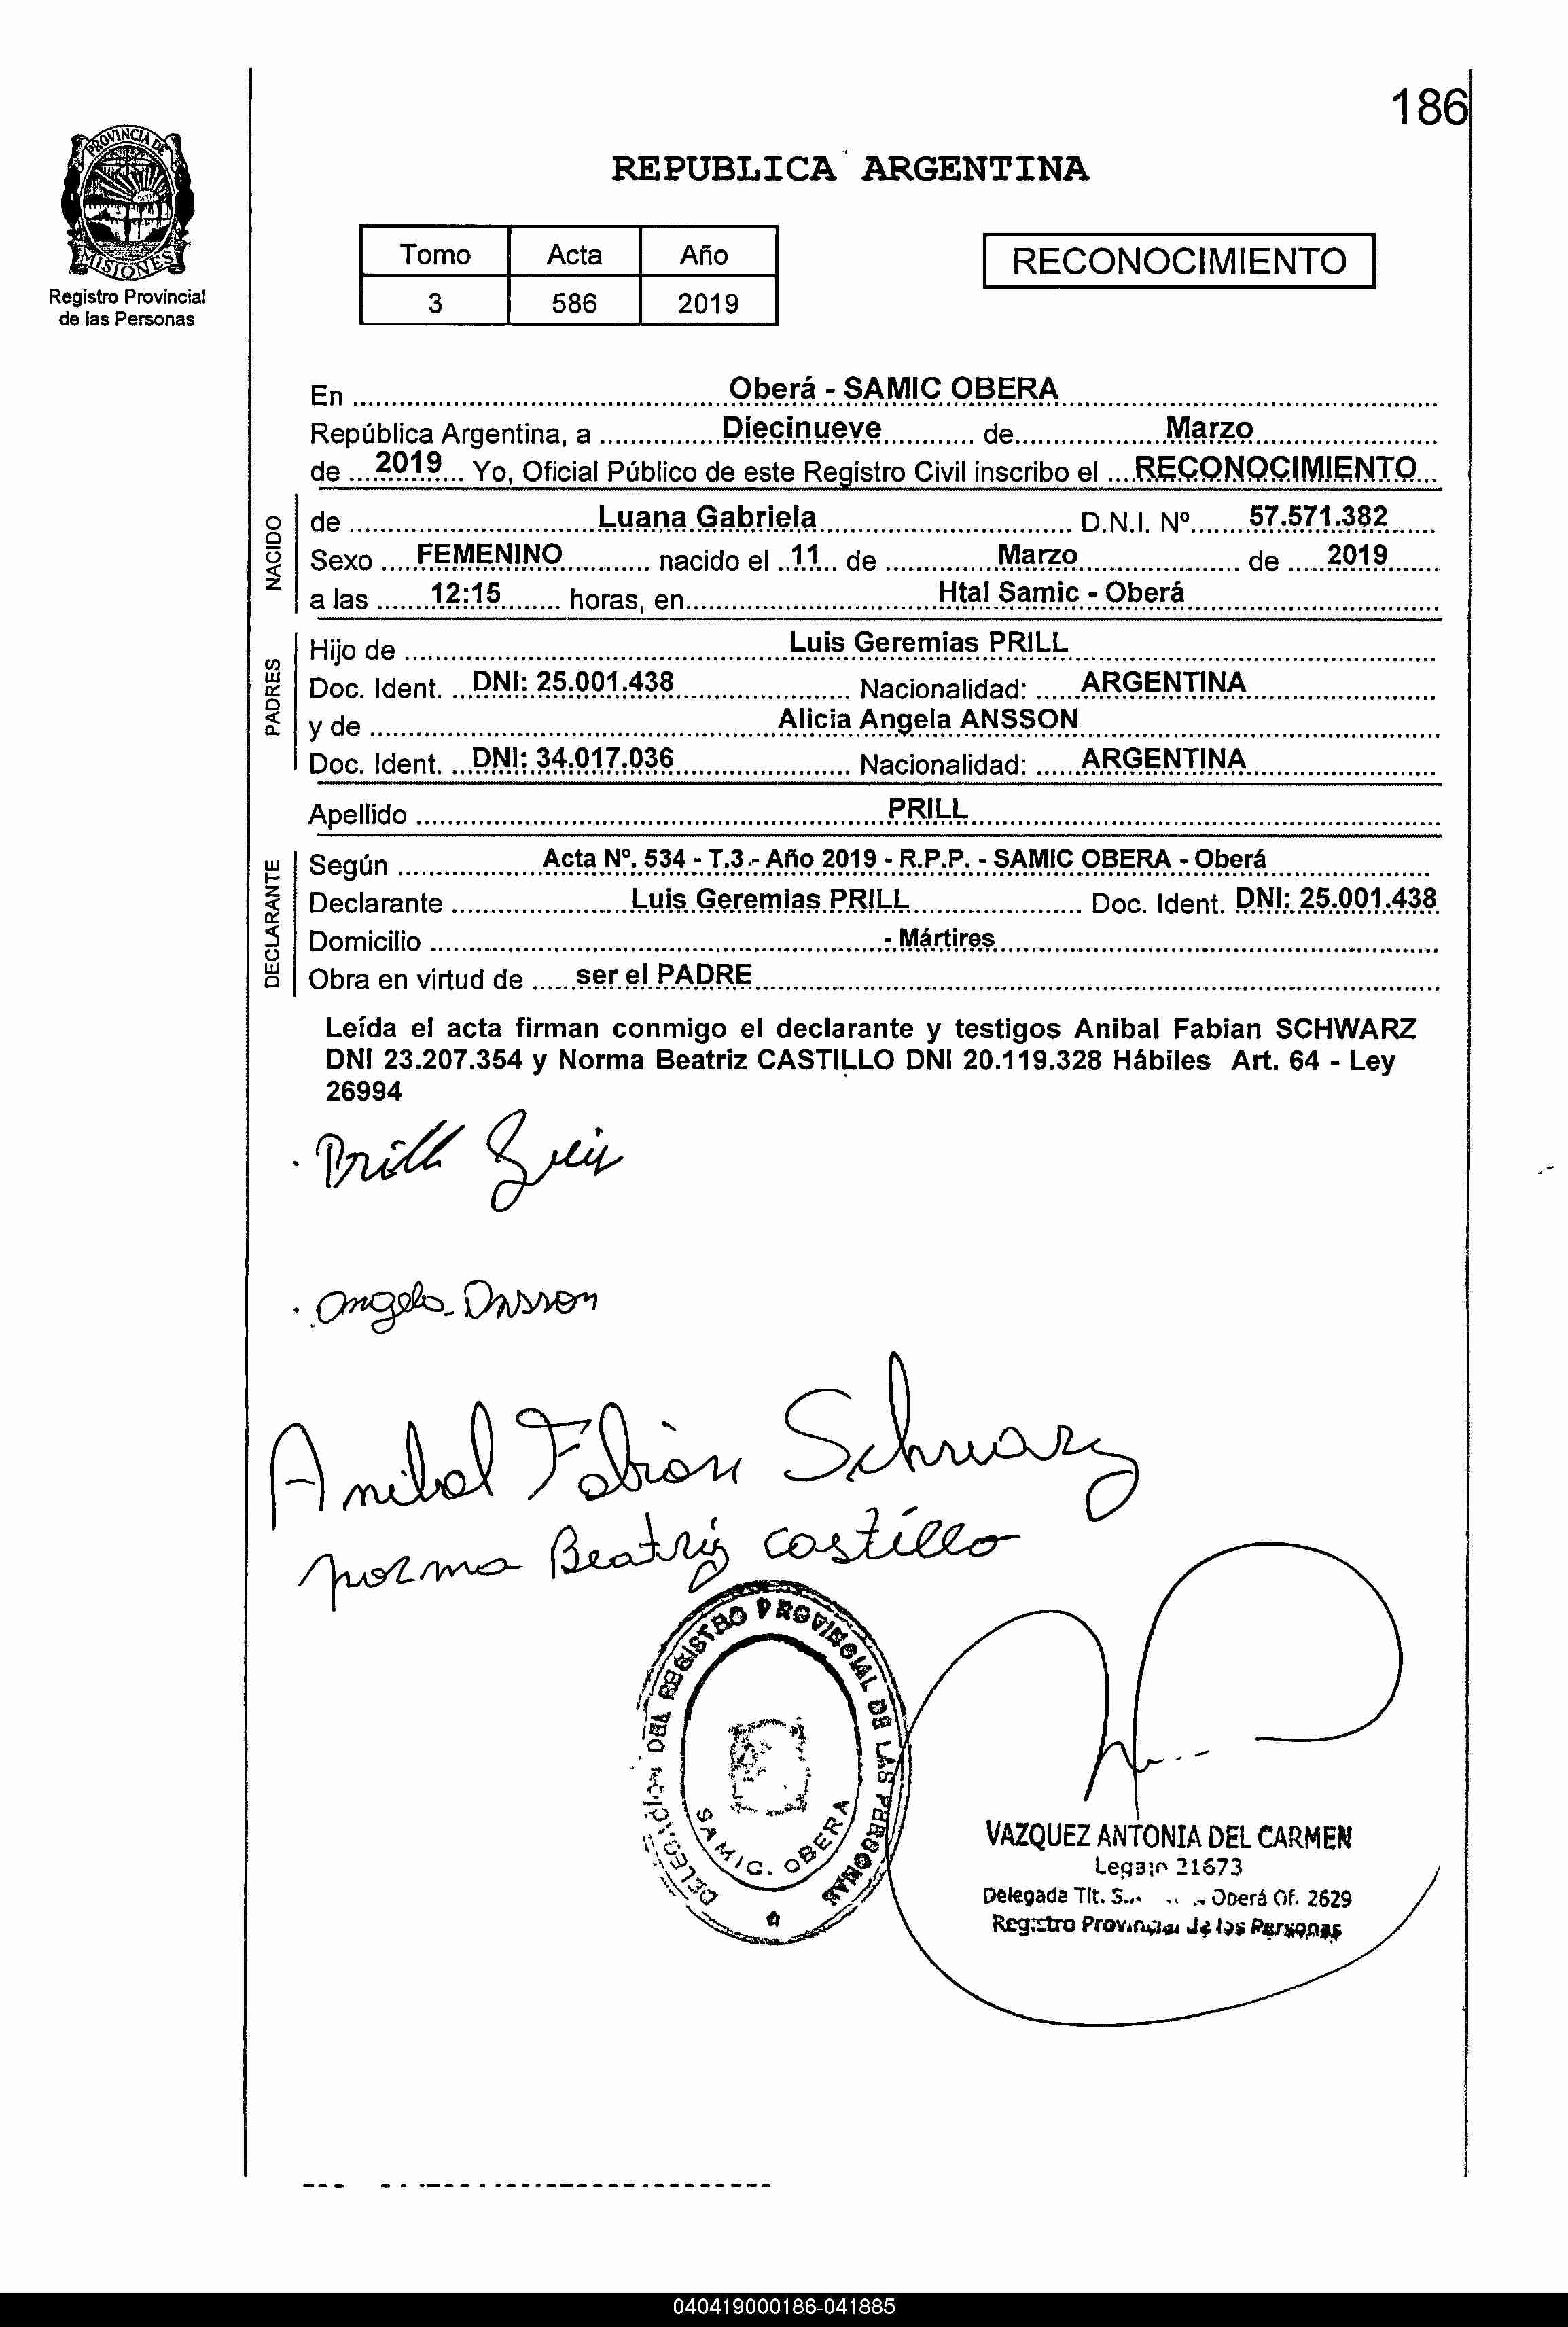 186
PROVINCIA DE
MISIONES
Registro Provincial
de las Personas
REPUBLICA ARGENTINA
Tomo Acta Año
3 586 2019
RECONOCIMIENTO
En Oberá - SAMIC OBERA
República Argentina, a Diecinueve de Marzo
de 2019 Yo, Oficial Público de este Registro Civil inscribo el RECONOCIMIENTO
NACIDO
de Luana Gabriela D.N.I. Nº 57.571.382
Sexo FEMENINO nacido el 11 de Marzo de 2019
a las 12:15 horas, en Htal Samic - Oberá
PADRES
Hijo de Luis Geremias PRILL
Doc. Ident. DNI: 25.001.438 Nacionalidad: ARGENTINA
y de Alicia Angela ANSSON
Doc. Ident. DNI: 34.017.036 Nacionalidad: ARGENTINA
Apellido PRILL
DECLARANTE
Según Acta Nº. 534 - T.3.- Año 2019 - R.P.P. - SAMIC OBERA - Oberá
Declarante Luis Geremias PRILL Doc. Ident. DNI: 25.001.438
Domicilio - Mártires
Obra en virtud de ser el PADRE
Leída el acta firman conmigo el declarante y testigos Anibal Fabian SCHWARZ
DNI 23.207.354 y Norma Beatriz CASTILLO DNI 20.119.328 Hábiles Art. 64 - Ley
26994
Prill Luis
Angela Ansson
Anibal Fabián Schwarz
Norma Beatriz Castillo
DELEGACION DEL REGISTRO PROVINCIAL DE LAS PERSONAS
SAMIC. OBERA
VAZQUEZ ANTONIA DEL CARMEN
Legajo 21673
Delegada Tit. Oberá Of. 2629
Registro Provincial de las Personas
040419000186-041885